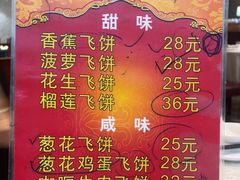 甜味
香蕉飞饼 28元
菠萝飞饼 28元
花生飞饼 25元
榴莲飞饼 36元
咸味
葱花飞饼 25元
葱花鸡蛋飞饼 28元